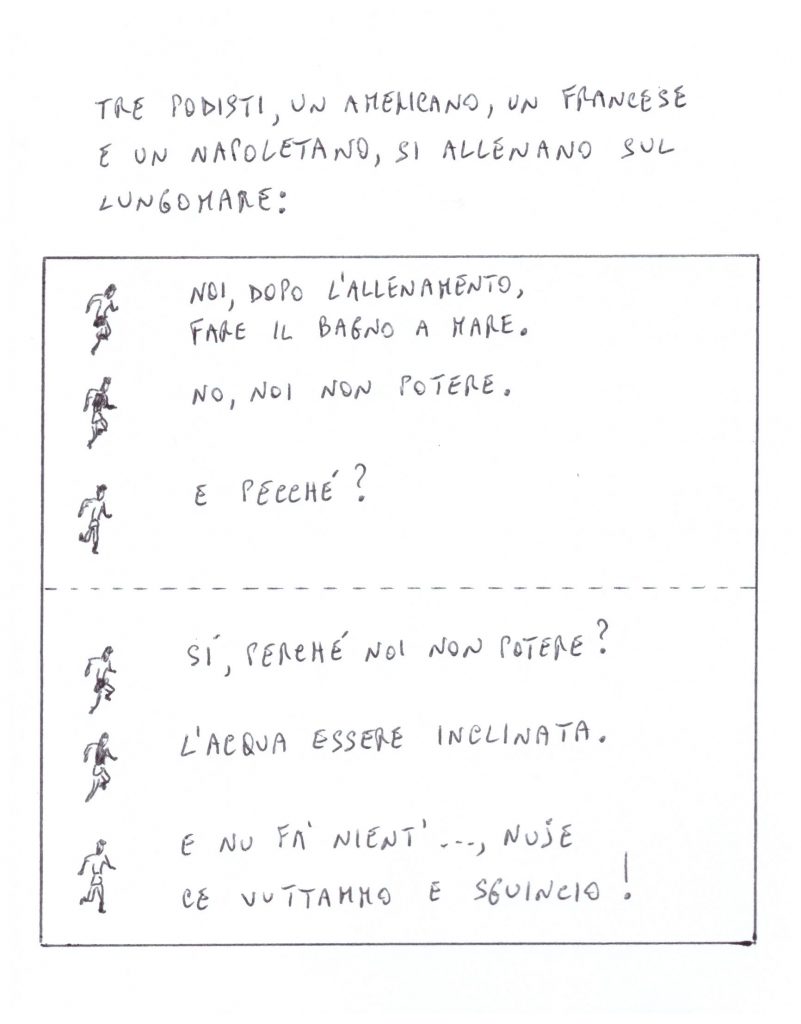 TRE PODISTI, UN AMERICANO, UN FRANCESE
E UN NAPOLETANO, SI ALLENANO SUL
LUNGOMARE:
NOI, DOPO L'ALLENAMENTO,
FARE IL BAGNO A MARE.
NO, NOI NON POTERE.
E PECCHÉ?
SÍ, PERCHÉ NOI NON POTERE?
L'ACQUA ESSERE INCLINATA.
E NU FA' NIENT'...., NUJE
CE VUTTAMMO E SGUINCIO!